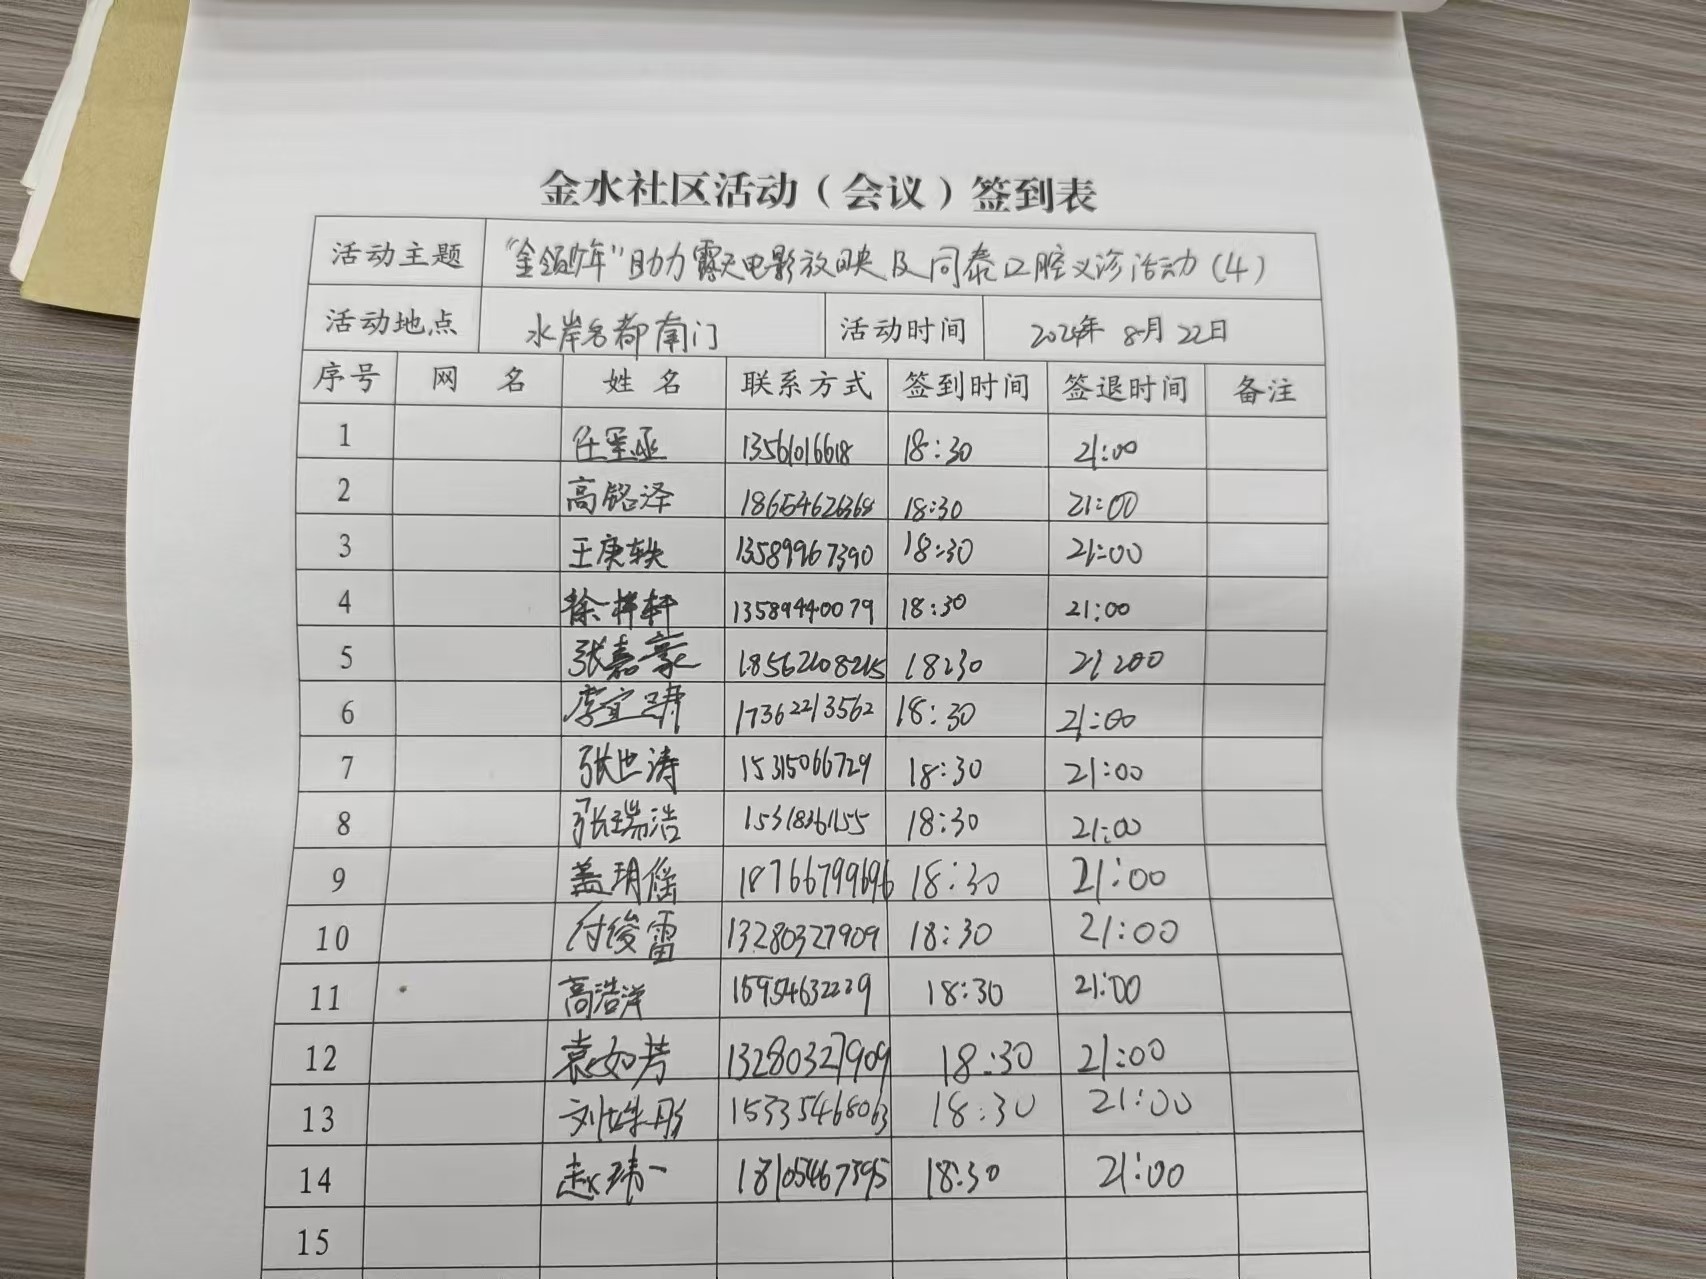 金水社区活动（会议）签到表
活动主题 "金领少年"助力露天电影放映及同泰口腔义诊活动(4)
活动地点 水岸名都南门 活动时间 2024年 8月 22日
序号 网 名 姓 名 联系方式 签到时间 签退时间 备注
1 13561016618 18:30 21:00
2 高铭泽 18654626368 18:30 21:00
3 王庚轶 13589967390 18:30 21:00
4 徐梓轩 13589440079 18:30 21:00
5 张嘉豪 18562108215 18:30 21:00
6 李宜璛 17362213562 18:30 21:00
7 张世涛 15315066729 18:30 21:00
8 张瑞浩 15318361155 18:30 21:00
9 盖玥傜 18766799696 18:30 21:00
10 付俊雷 13280327909 18:30 21:00
11 高浩洋 15954632239 18:30 21:00
12 袁如芳 13280327909 18:30 21:00
13 刘姝彤 15335468063 18:30 21:00
14 赵玮一 18105467395 18:30 21:00
15